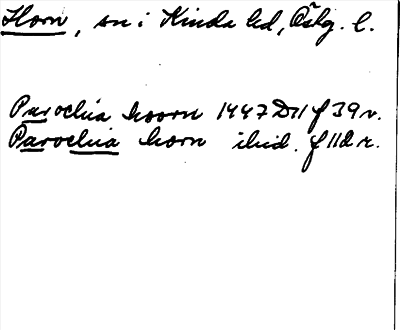 Horn, sn i Kinda hd, Östg. l.
Parochia hoorn 1447 D11 f 39 v.
Parochia horn ibid. f 112 r.